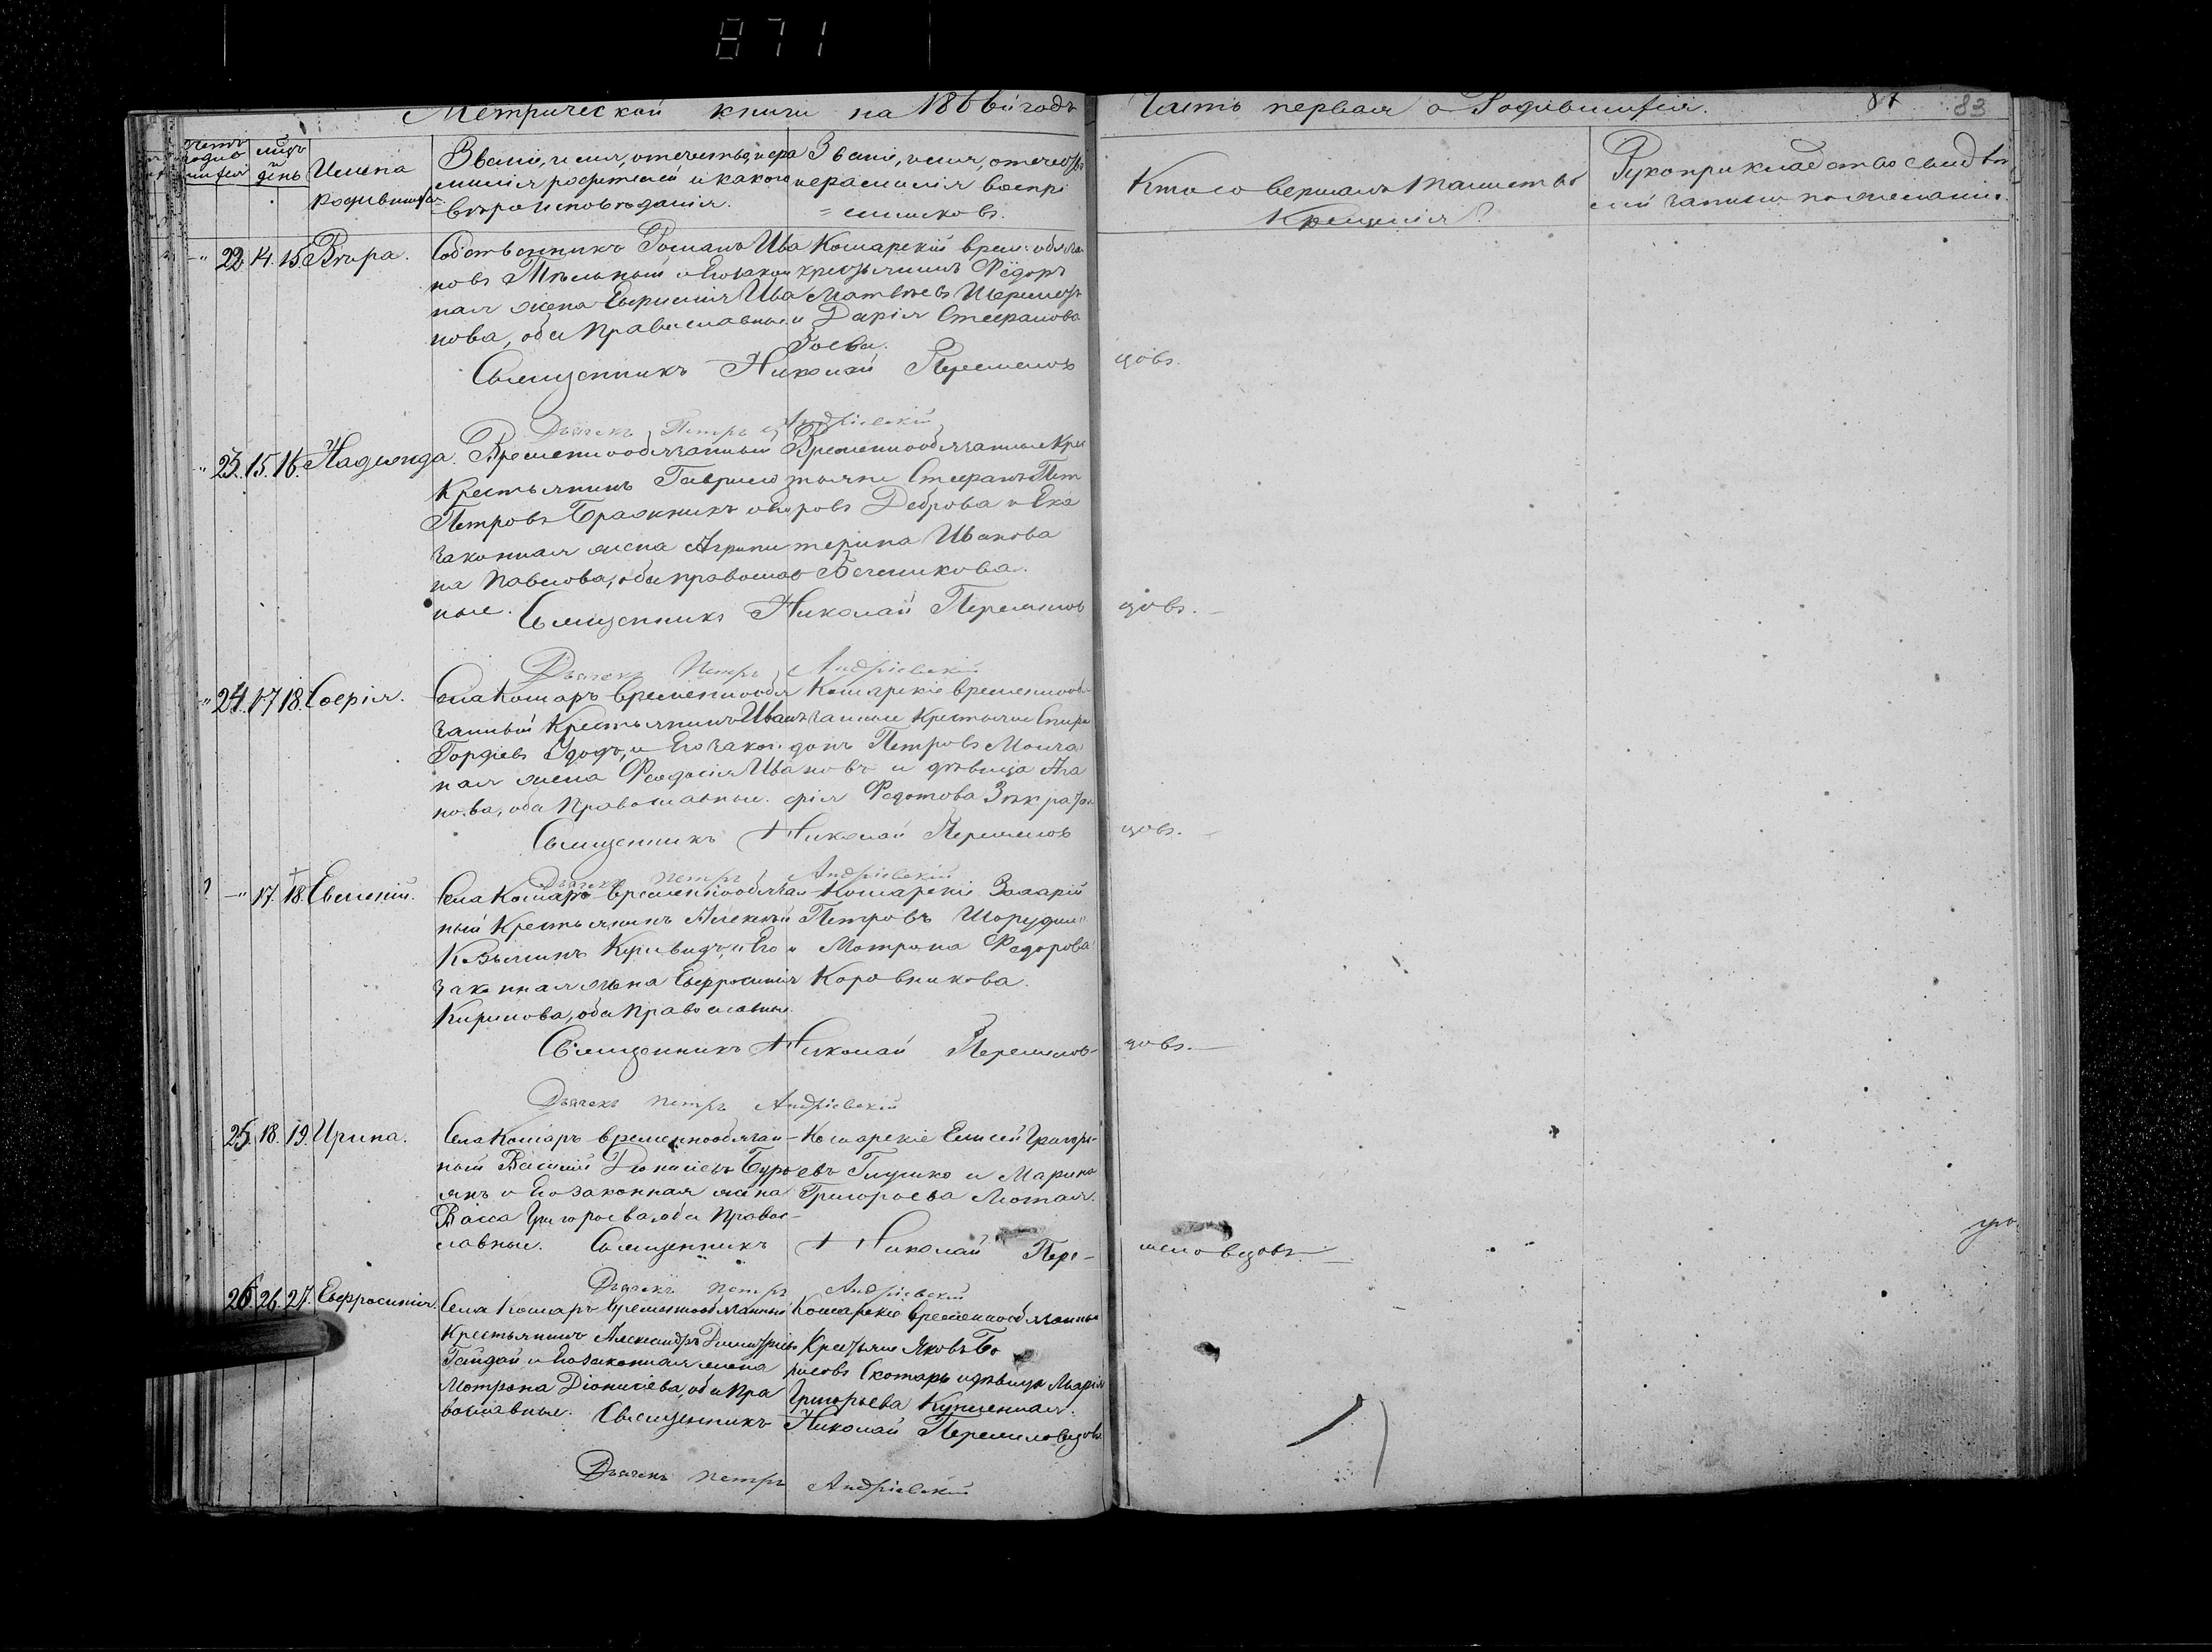 871
Метрической книги на 1866й годъ Часть первая о Родившихся. 87 83
Счетъ родившихся
Мѣсяцъ и день
Имена родившихся.
Званіе, имя, отечество, и фамилія родителей, и какого вѣроисповѣданія.
Званіе, имя, отечество и фамилія воспріемниковъ.
Кто совершалъ таинство Крещенія?
Рукоприкладство свидѣтелей записи по желанію.
22. 14. 15. Вѣра.
Собственникъ Романъ Ива
новъ и Его закон
ная жена Ива
нова, оба Православные
Кошарскій врем: обяза
крестьянинъ Фёдоръ
Матвѣевъ
и Дарія Стефанова
Священникъ Николай Перемиловцовъ.
Дьячекъ Петръ Андріевскій
23. 15. 16. Надежда.
Временнообязанный
Крестьянинъ Гавріилъ
Петровъ Бражникъ и Его
законная жена Агрипи
на Павлова, оба православ
ные.
Временнообязанные Кре
стьяне Стефанъ Пет
ровъ Доброва и Ека
терина Иванова
Бечникова.
Священникъ Николай Перемиловцовъ.
Дьячекъ Петръ Андріевскій
24. 17. 18. Софія.
Села Кошаръ временнообя
занный Крестьянинъ Иванъ
Гордіевъ Удодъ, и Его закон:
ная жена Феодосія Ива
нова, оба Православные.
Кошарскіе временнообя
занные Крестьяне Спири
донъ Петровъ Молча
новъ и дѣвица Ага
фія Федотова
Священникъ Николай Перемиловцовъ.
Дьячекъ Петръ Андріевскій
17. 18. Евменій.
Села Кошаръ временнообязан
ный Крестьянинъ Алексѣй
Козьминъ Кривидъ, и Его
законная жена Евфросинія
Кирилова, оба Православные
Кошарскіе Захарій
Петровъ
и Матрона Федорова
Коровникова.
Священникъ Николай Перемиловцовъ.
Дьячекъ Петръ Андріевскій
25. 18. 19. Ирина.
Села Кошаръ временнообязан
ный Василій Діонисіевъ Бурь
янъ и Его законная жена
Васса Григорьева, оба Правос
лавные.
Кошарскіе Елисей Григорь
евъ Глушко и Марина
Григорьева Мотая.
Священникъ Николай Перемиловцовъ.
Дьячекъ Петръ Андріевскій
26. 26. 27. Евфросинія.
Села Кошаръ временнообязанный
Крестьянинъ Александръ Димитріевъ
Гайдай и Его законная жена
Матрона Діонисіева, оба Пра
вославные.
Кошарскіе временнообязанные
Крестьяне Яковъ Бо
рисовъ Скотарь и дѣвица Марія
Григорьева
Священникъ Николай Перемиловцовъ.
Дьячекъ Петръ Андріевскій